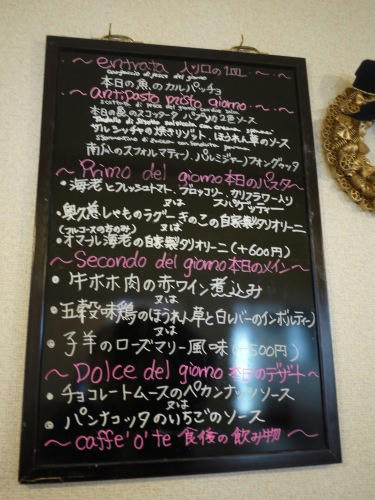 ～entrata 入り口の1皿～
carpaccio di pesce del giorno
本日の魚のカルパッチョ
～antipasto misto giorno～
本日の魚のスコッタータ バジリコの2色ソース
サルシッチャの焼きリゾット、ほうれん草のソース
南瓜のスフォルマティーノ、パルミジャーノフォンドゥッタ
～Primo del giorno 本日のパスタ～
・海老とフレッシュトマト、ブロッコリー、カリフラワー入りスパゲッティー
又は
・奥久慈しゃものラグーときのこの自家製タリオリーニ
(フルコースの方のみ) 又は
・オマール海老の自家製タリオリーニ(+600円)
～Secondo del giorno 本日のメイン～
・牛ホホ肉の赤ワイン煮込み
又は
・五穀味鶏のほうれん草と白レバーのインボルティーノ
又は
・子羊のローズマリー風味(+500円)
～Dolce del giorno 本日のデザート～
・チョコレートムースのペカンナッツソース
又は
・パンナコッタのいちごのソース
～caffe'o'te 食後の飲み物～